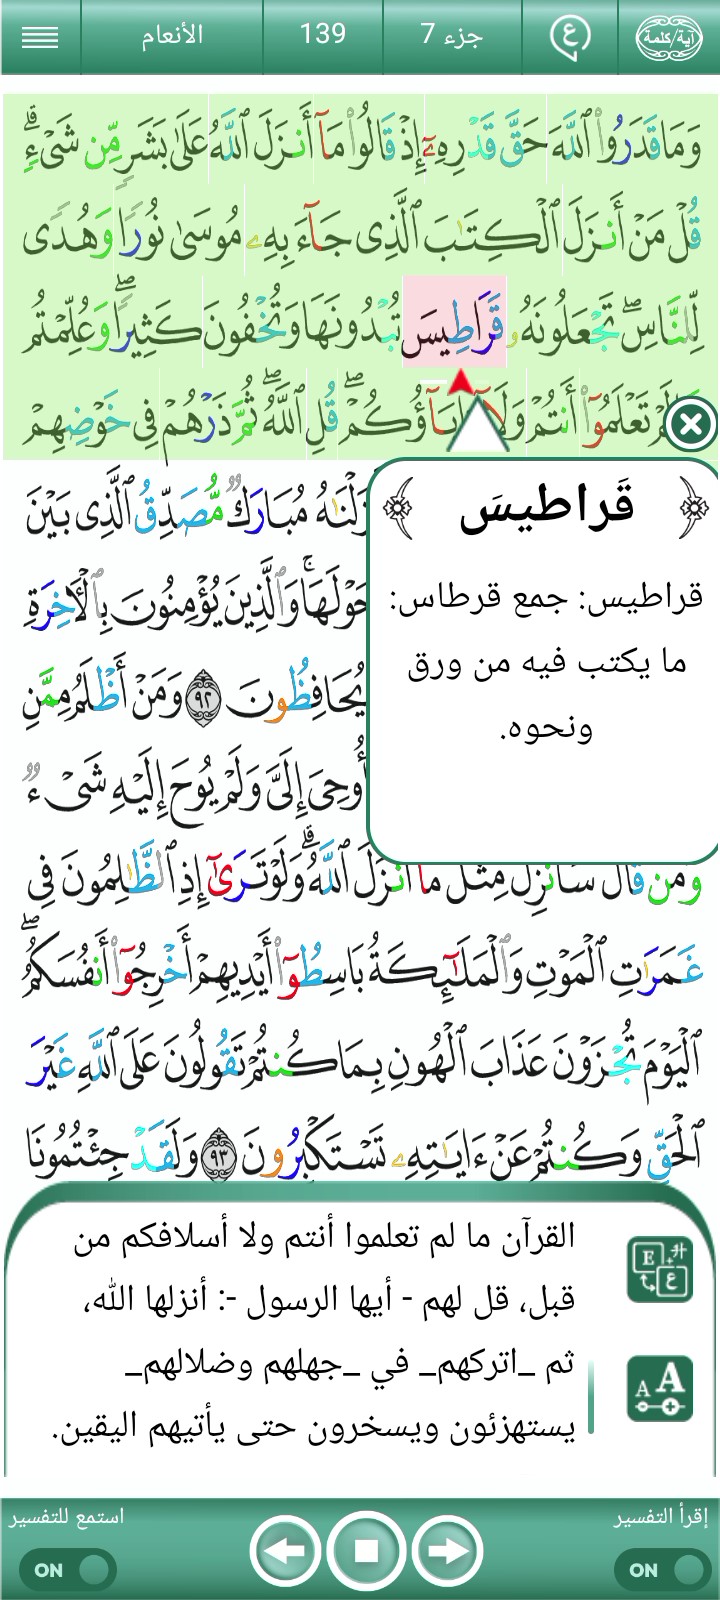 آية/كلمة
ع
جزء 7
139
الأنعام
وَمَا قَدَرُوا۟ ٱللَّهَ حَقَّ قَدْرِهِۦٓ إِذْ قَالُوا۟ مَآ أَنزَلَ ٱللَّهُ عَلَىٰ بَشَرٍ مِّن شَىْءٍۗ
قُلْ مَنْ أَنزَلَ ٱلْكِتَـٰبَ ٱلَّذِى جَآءَ بِهِۦ مُوسَىٰ نُورًا وَهُدًى
لِّلنَّاسِۖ تَجْعَلُونَهُۥ قَرَاطِيسَ تُبْدُونَهَا وَتُخْفُونَ كَثِيرًاۖ وَعُلِّمْتُم
تَعْلَمُوٓا۟ أَنتُمْ وَلَآ ءَابَآؤُكُمْۖ قُلِ ٱللَّهُۖ ثُمَّ ذَرْهُمْ فِى خَوْضِهِمْ
مُبَارَكٌ مُّصَدِّقُ ٱلَّذِى بَيْنَ
حَوْلَهَاۚ وَٱلَّذِينَ يُؤْمِنُونَ بِٱلْـَٔاخِرَةِ
يُحَافِظُونَ ٩٢ وَمَنْ أَظْلَمُ مِمَّنِ
أُوحِىَ إِلَىَّ وَلَمْ يُوحَ إِلَيْهِ شَىْءٌ
وَمَن قَالَ سَأُنزِلُ مِثْلَ مَآ أَنزَلَ ٱللَّهُۗ وَلَوْ تَرَىٰٓ إِذِ ٱلظَّـٰلِمُونَ فِى
غَمَرَٰتِ ٱلْمَوْتِ وَٱلْمَلَـٰٓئِكَةُ بَاسِطُوٓا۟ أَيْدِيهِمْ أَخْرِجُوٓا۟ أَنفُسَكُمُۖ
ٱلْيَوْمَ تُجْزَوْنَ عَذَابَ ٱلْهُونِ بِمَا كُنتُمْ تَقُولُونَ عَلَى ٱللَّهِ غَيْرَ
ٱلْحَقِّ وَكُنتُمْ عَنْ ءَايَـٰتِهِۦ تَسْتَكْبِرُونَ ٩٣ وَلَقَدْ جِئْتُمُونَا
﴿ قَراطيسَ ﴾
قراطيس: جمع قرطاس:
ما يكتب فيه من ورق
ونحوه.
القرآن ما لم تعلموا أنتم ولا أسلافكم من
قبل، قل لهم - أيها الرسول -: أنزلها الله،
ثم _اتركهم_ في _جهلهم وضلالهم_
يستهزئون ويسخرون حتى يأتيهم اليقين.
إقرأ التفسير
استمع للتفسير
ON
ON